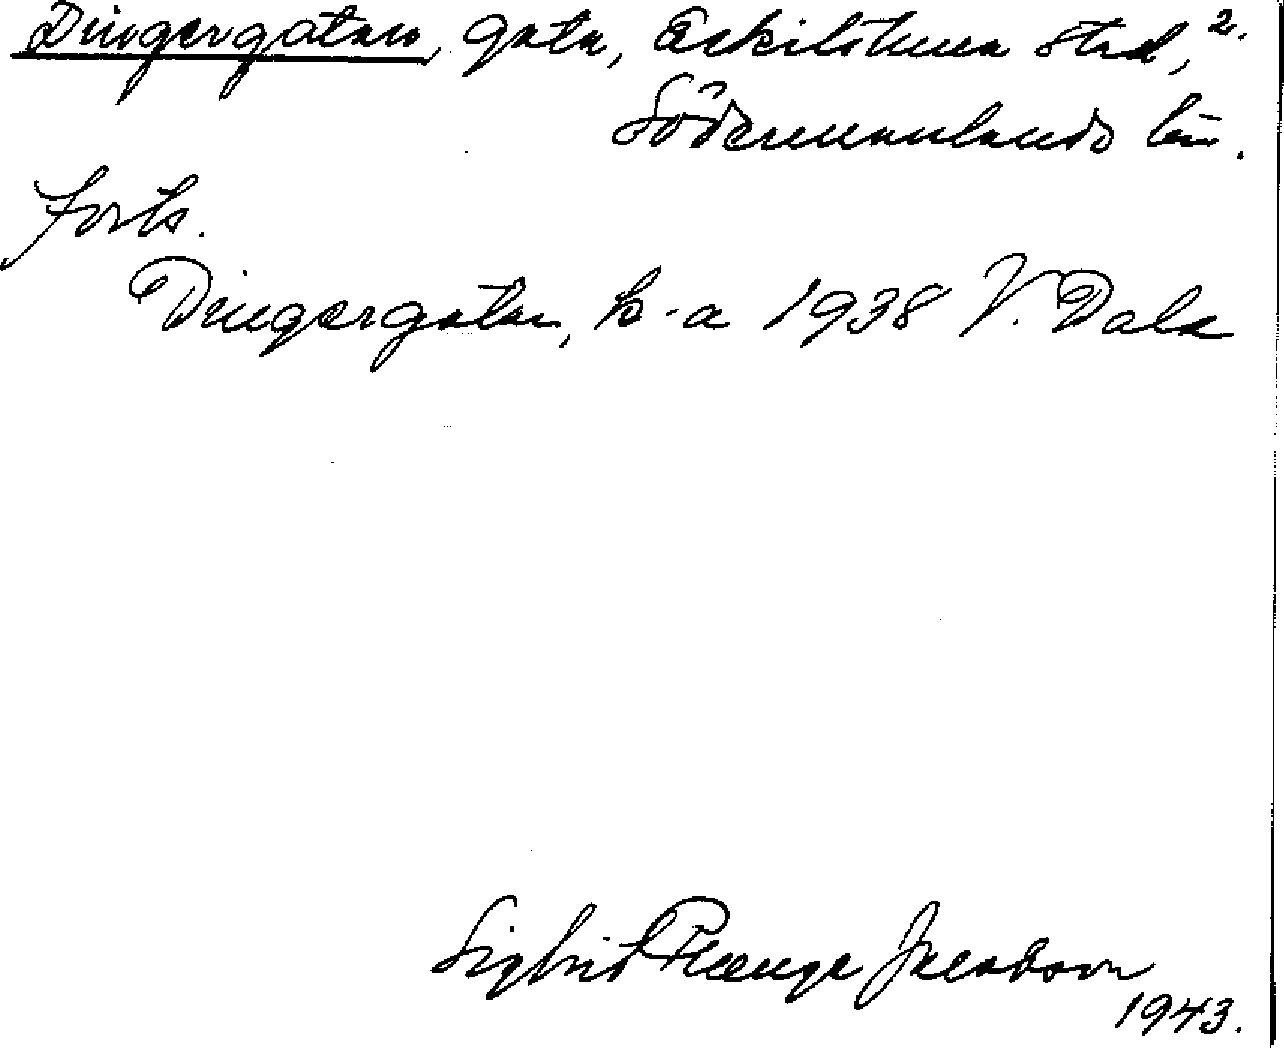 Dingergatan, gata, Eskilstuna stad, 2.
Södermanlands län.
forts.
Dingergatan, k-a 1938 V. Dala
Sigbrit Plænge Jacobson
1943.